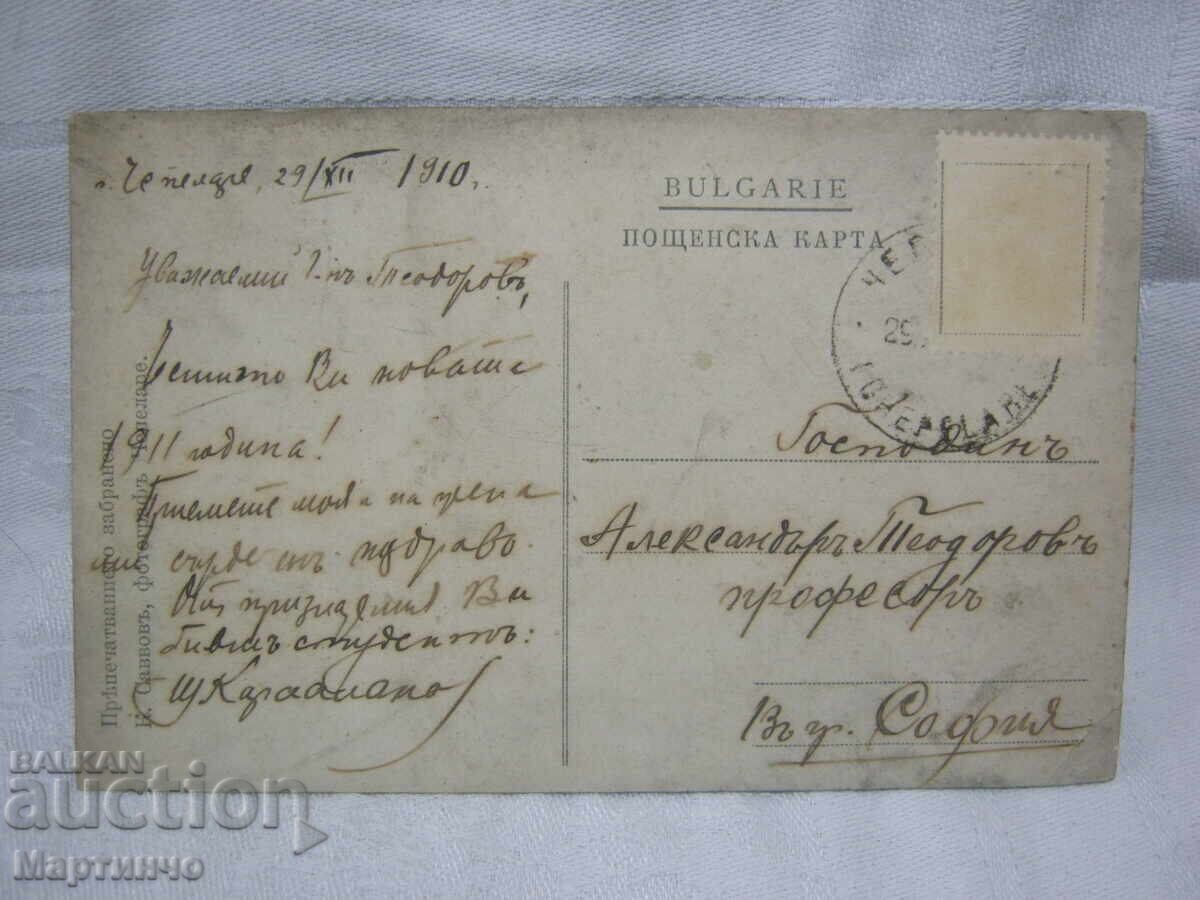 с. Чепеларе, 29/XII 1910.
Уважаемий Г-нъ Теодоровъ,
Честито Ви новата
1911 година!
Приемете моя
сърдеченъ поздравъ.
Отъ признателния Ви
бивш студентъ:
Прѣпечатванието забранено
Н. Саввовъ, фотографъ Чепеларе.
BULGARIE
ПОЩЕНСКА КАРТА
ЧЕП
29.
TCHEPELARE
Господинъ
Александъръ Теодоровъ
професоръ
Въ гр. София
BALKAN
auction
Мартинчо